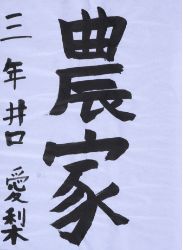 農家
三年井口愛梨